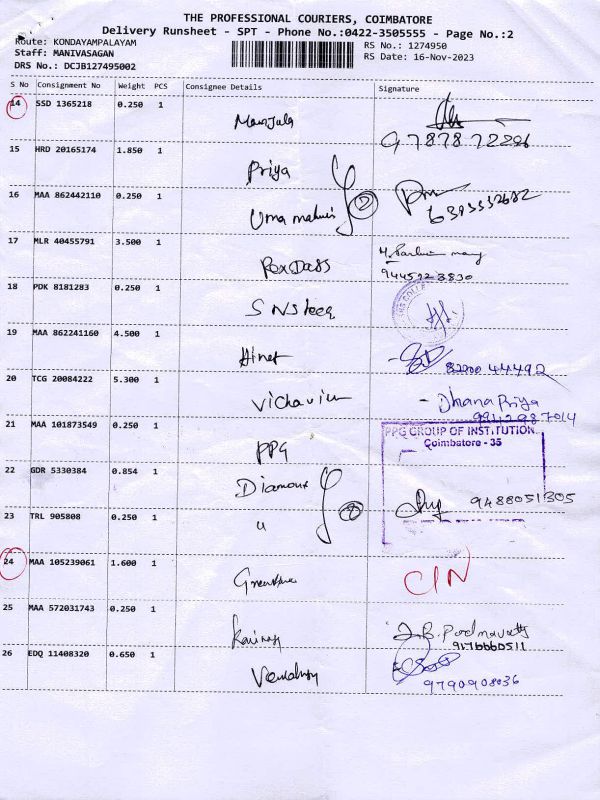 THE PROFESSIONAL COURIERS, COIMBATORE
Delivery Runsheet - SPT - Phone No.:0422-3505555 - Page No.:2
Route: KONDAYAMPALAYAM
RS No.: 1274950
Staff: MANIVASAGAN
RS Date: 16-Nov-2023
DRS No.: DCJB127495002
S No Consignment No Weight PCS Consignee Details Signature
14 SSD 1365218 0.250 1
Manjula
97878 72286
15 HRD 20165174 1.850 1
Priya
16 MAA 862442110 0.250 1
Uma
2
17 MLR 40455791 3.500 1
RexDass
18 PDK 8181283 0.250 1
SNS
19 MAA 862241160 4.500 1
82200 44492
20 TCG 20084222 5.300 1
- Dhana Priya
9942987014
21 MAA 101873549 0.250 1
PPG
PPG GROUP OF INSTITUTION
Coimbatore - 35
22 GDR 5330384 0.854 1
Diamond
9488051305
23 TRL 905808 0.250 1
24 MAA 105239061 1.600 1
CIN
25 MAA 572031743 0.250 1
26 EDQ 11408320 0.650 1
9790908036